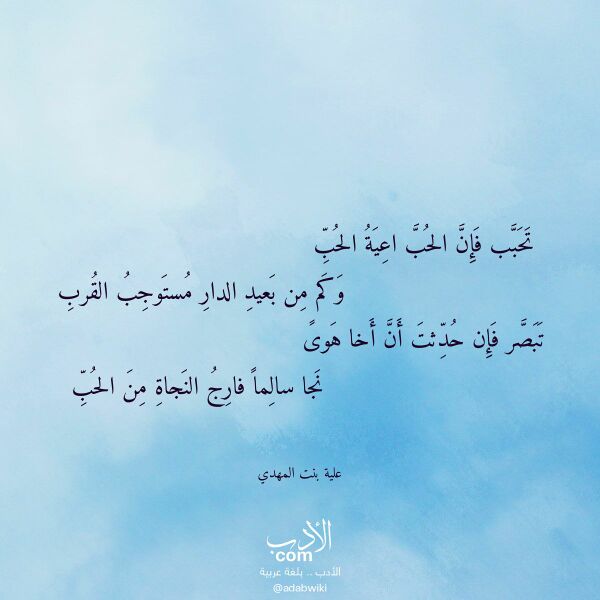 تَحَبَّب فَإِنَّ الحُبَّ اعِيَةُ الحُبِّ
وَكَم مِن بَعيدِ الدارِ مُستَوجِبُ القُربِ
تَبَصَّر فَإِن حُدِّثتَ أَنَّ أَخا هَوىً
نَجا سالِماً فارِجُ النَجاةِ مِنَ الحُبِّ
علية بنت المهدي
الأدب
com
الأدب .. بلغة عربية
@adabwiki